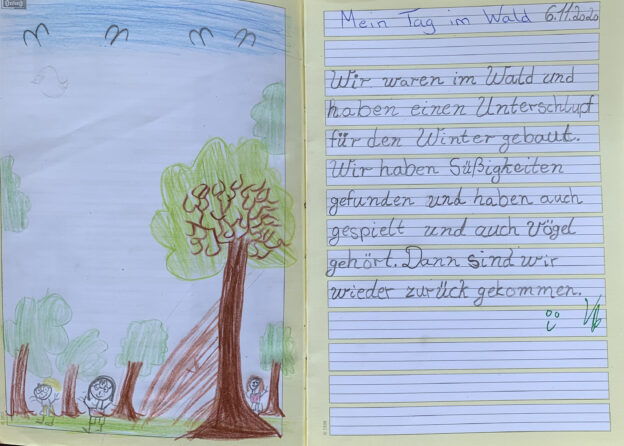 Mein Tag im Wald 6.11.2020
Wir waren im Wald und
haben einen Unterschlupf
für den Winter gebaut.
Wir haben Süßigkeiten
gefunden und haben auch
gespielt und auch Vögel
gehört. Dann sind wir
wieder zurück gekommen.